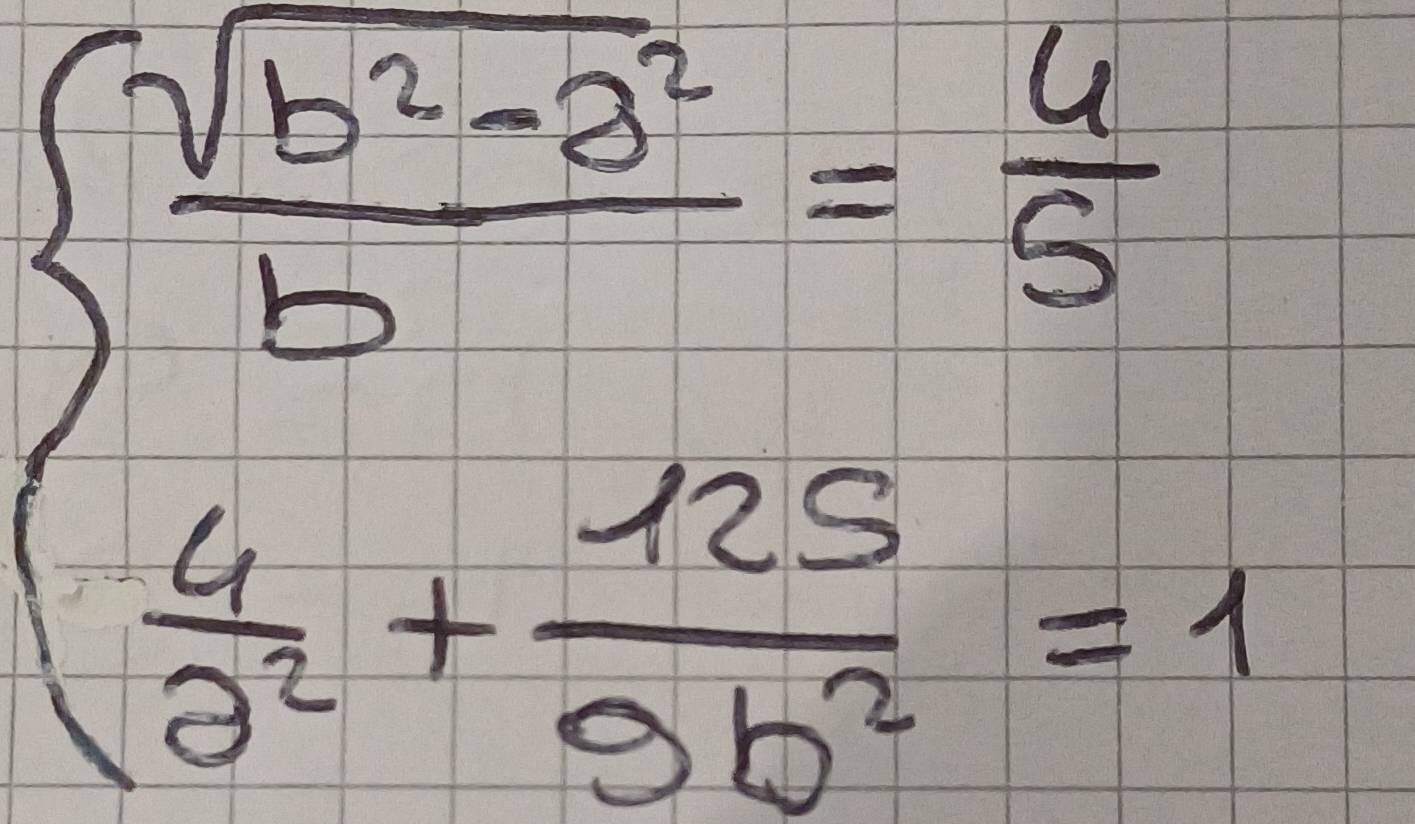 √(b² - a²) / b = 4/5
4/a² + 125/9b² = 1